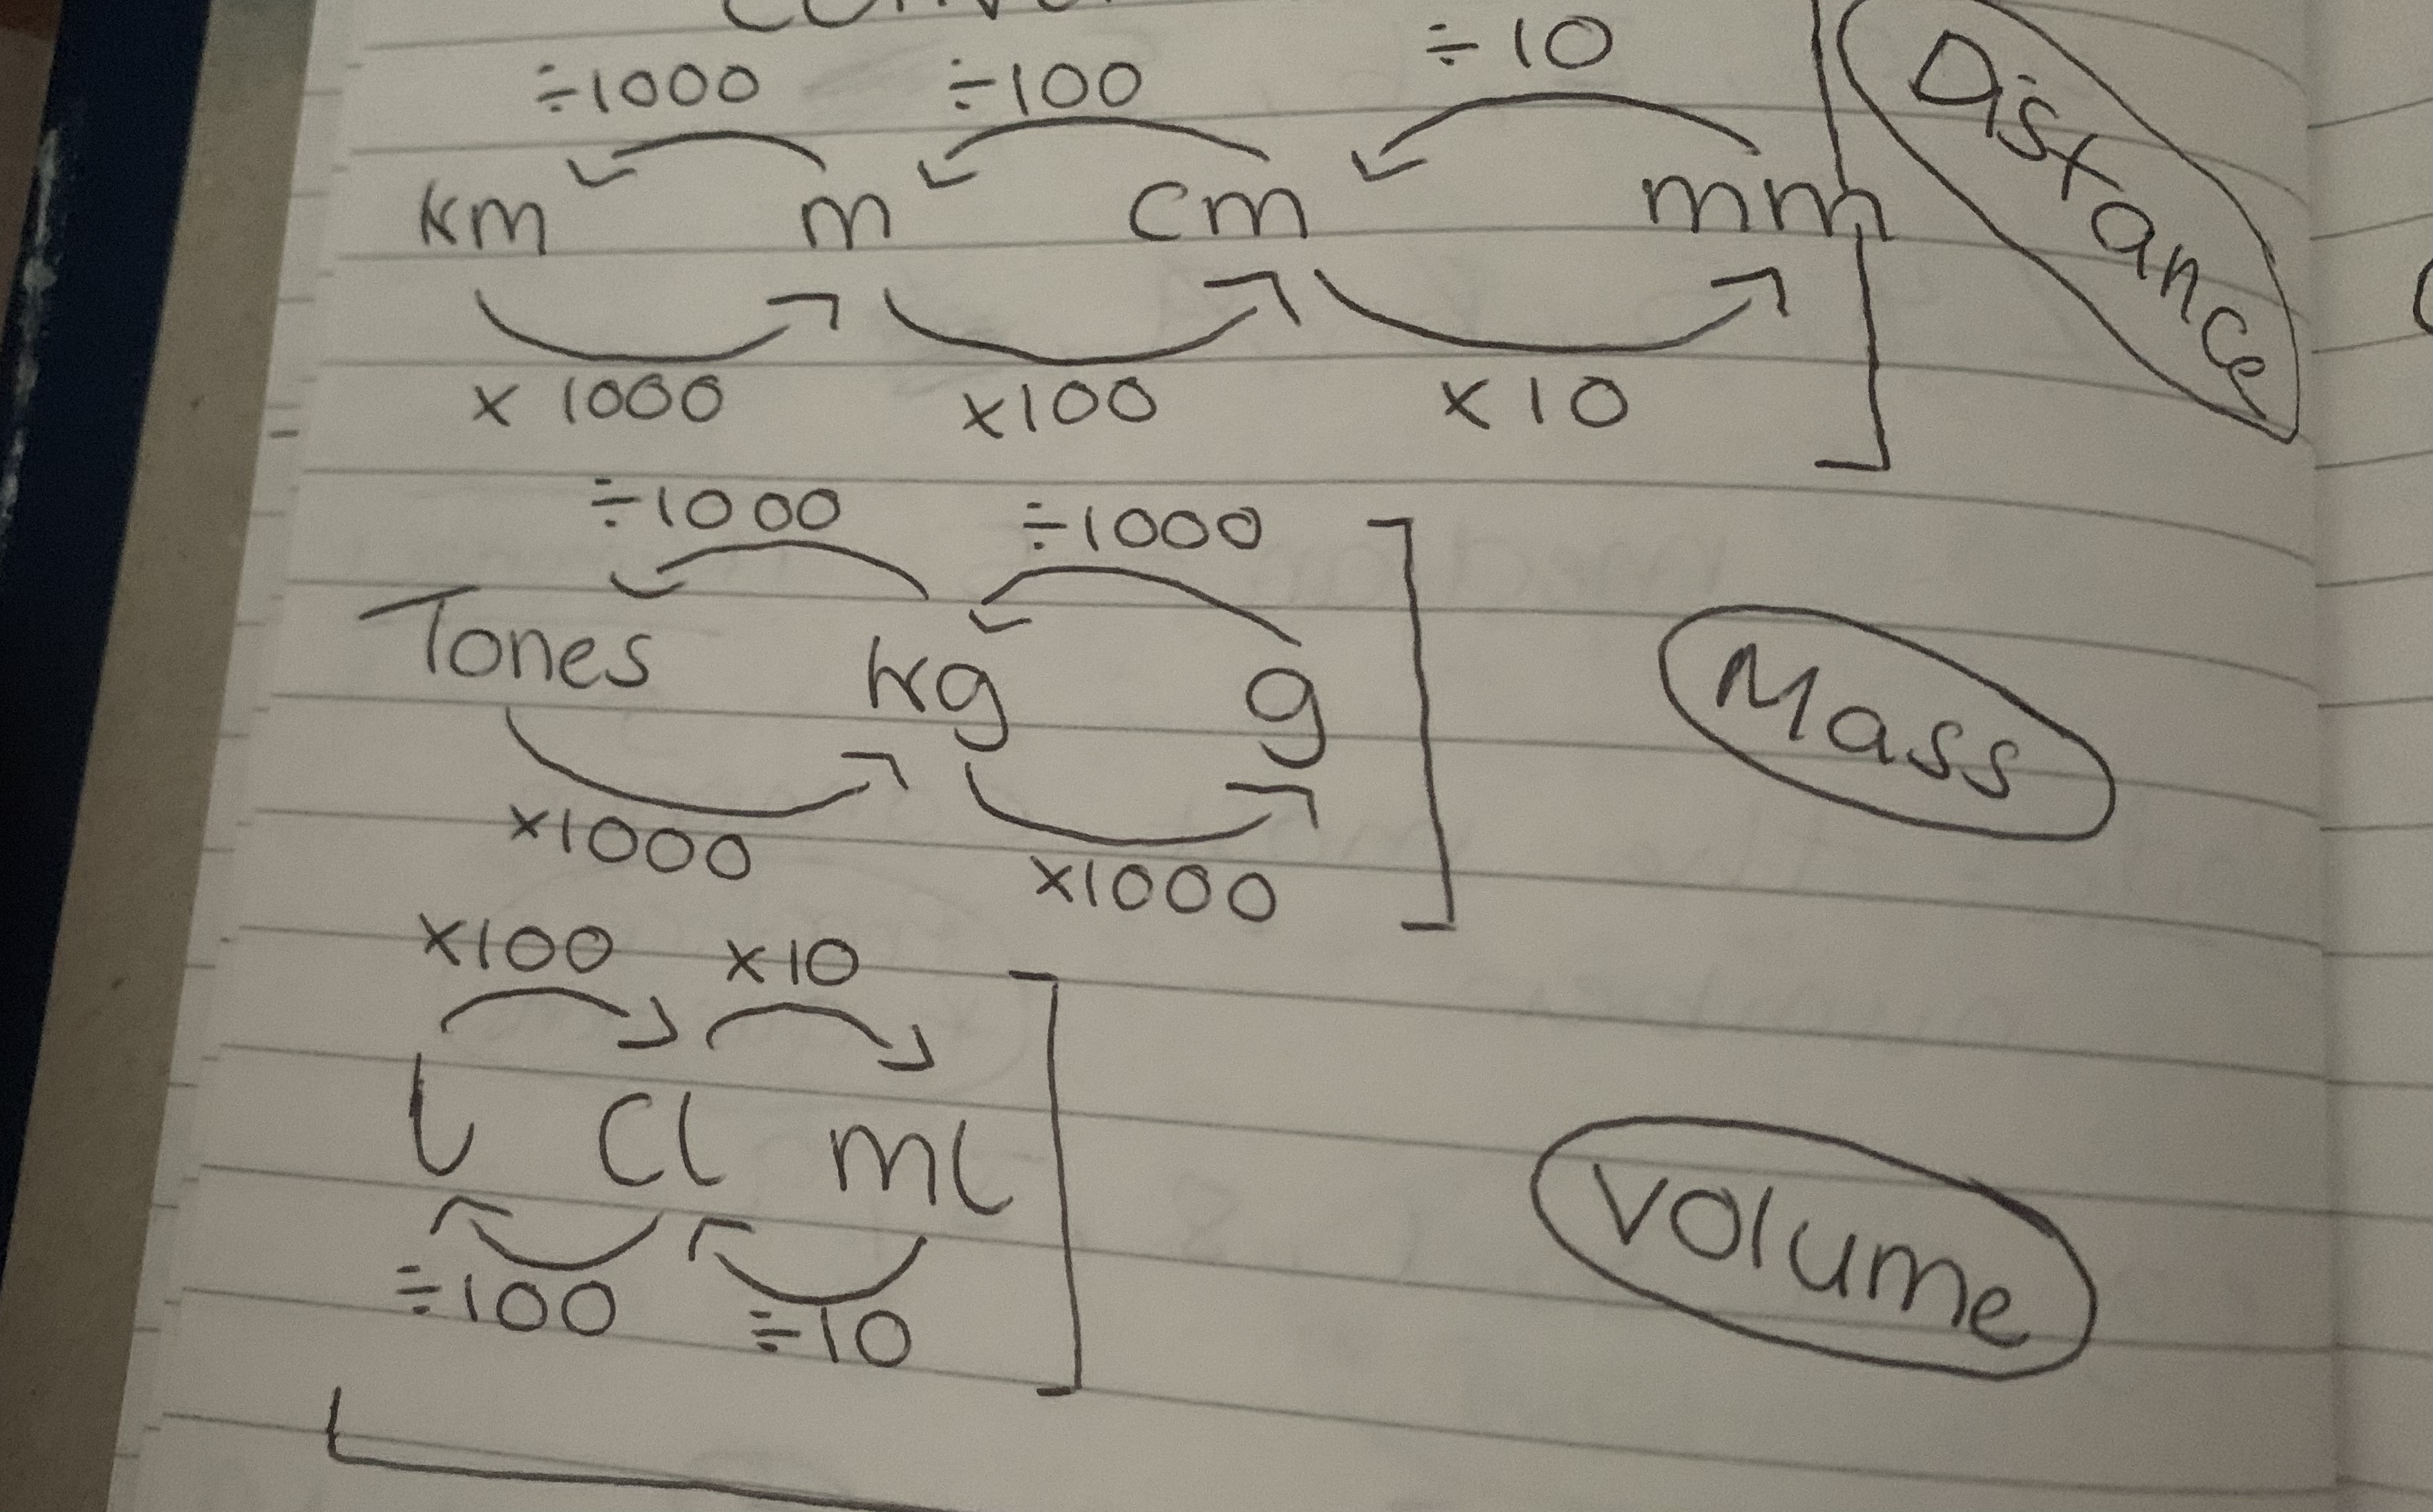 ÷1000 ÷100 ÷10
km m cm mm
x 1000 x100 x 10
Distance
÷1000 ÷1000
Tones kg g
x1000 x1000
Mass
x100 x10
l cl ml
÷100 ÷10
Volume